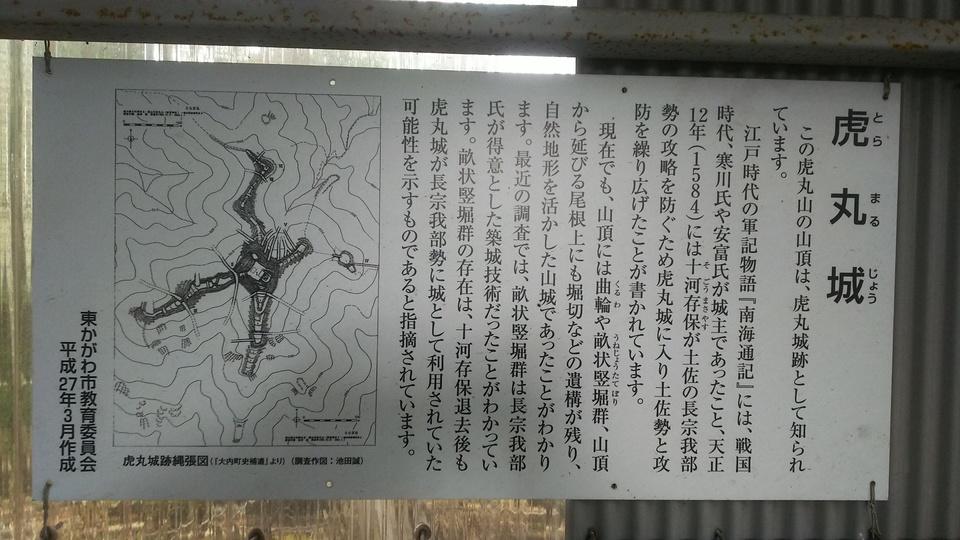 虎丸城
とらまるじょう
この虎丸山の山頂は、虎丸城跡として知られ
ています。
江戸時代の軍記物語『南海通記』には、戦国
時代、寒川氏や安富氏が城主であったこと、天正
12年（1584）には十河存保が土佐の長宗我部
そごうまさやす
勢の攻略を防ぐため虎丸城に入り土佐勢と攻
防を繰り広げたことが書かれています。
現在でも、山頂には曲輪や畝状竪堀群、山頂
くるわ
うねじょうたてぼり
から延びる尾根上にも堀切などの遺構が残り、
自然地形を活かした山城であったことがわかり
ます。最近の調査では、畝状竪堀群は長宗我部
氏が得意とした築城技術だったことがわかってい
ます。畝状竪堀群の存在は、十河存保退去後も
虎丸城が長宗我部勢に城として利用されていた
可能性を示すものであると指摘されています。
虎丸城跡縄張図（『大内町史補遺』より）（調査作図：池田誠）
東かがわ市教育委員会
平成27年3月作成